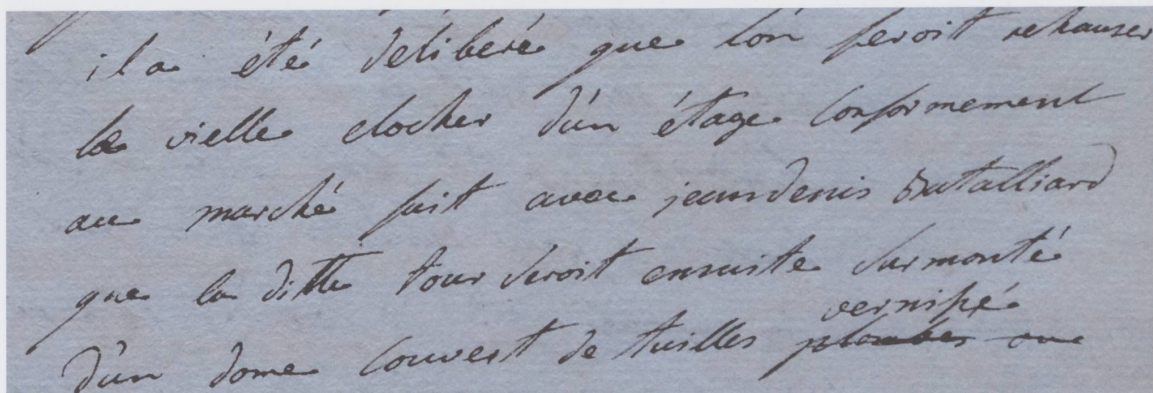 il a été déliberé que l'on feroit rehauser
le vielle clocher d'un étage Conformement
au marché fait avec jeandenis Dutalliard
que la ditte tour seroit ensuite surmonté
vernissé
d'un dome Couvert de tuilles plombés ou